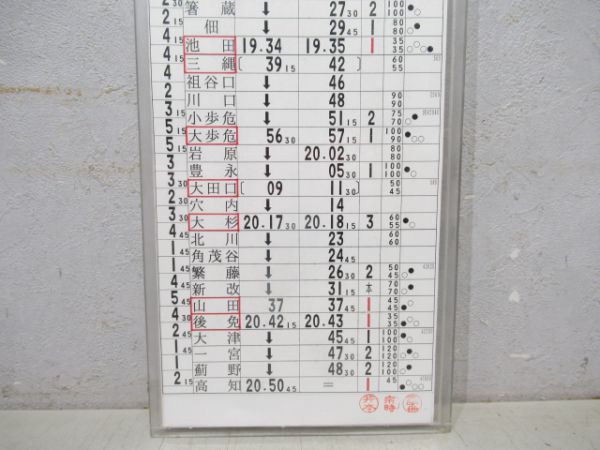 2 箸蔵 ↓ 27 30 2 100 100
2 15 佃 ↓ 29 45 1 80 80
4 池田 19.34 19.35 1 35 35
4 15 三縄 〔 39 15 42 〕 60 55
4 祖谷口 ↓ 46
2 川口 ↓ 48 90 90
3 15 小歩危 ↓ 51 15 2 75 70
5 15 大歩危 56 30 57 15 1 100 90
5 15 岩原 ↓ 20.02 30 80 80
3 豊永 ↓ 05 30 1 100 100
3 30 大田口 〔 09 11 30 〕 50 45
2 30 穴内 ↓ 14
3 30 大杉 20.17 30 20.18 15 3 60 55
4 45 北川 ↓ 23 60 60
1 45 角茂谷 ↓ 24 45
1 45 繁藤 ↓ 26 30 2 50 45
4 45 新改 ↓ 31 15 本 70 70
5 45 山田 37 37 45 1 45 45
4 30 後免 20.42 15 20.43 1 35 35
2 45 大津 ↓ 45 45 1 100 100
1 45 一宮 ↓ 47 30 2 120 120
1 薊野 ↓ 48 30 2 120 100
2 15 高知 20.50 45 = 1 45